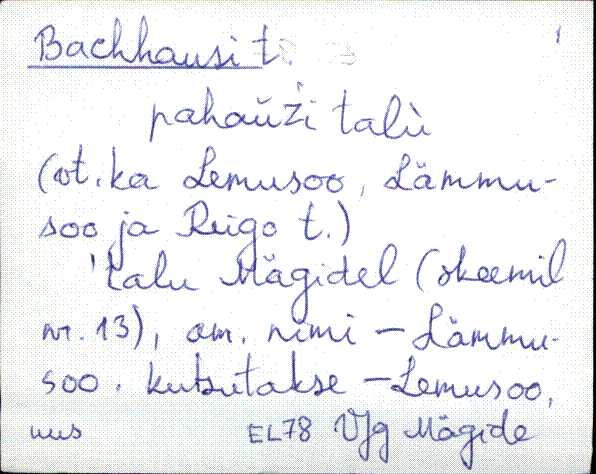 Bachhausi t. 1
pahaùži talù
(vt. ka Lemusoo, Lämmu-
soo ja Reigo t.)
talu Mägidel (skeemil
nr. 13), am. nimi – Lämmu-
soo. kutsutakse – Lemusoo,
uus EL78 VJg Mägide